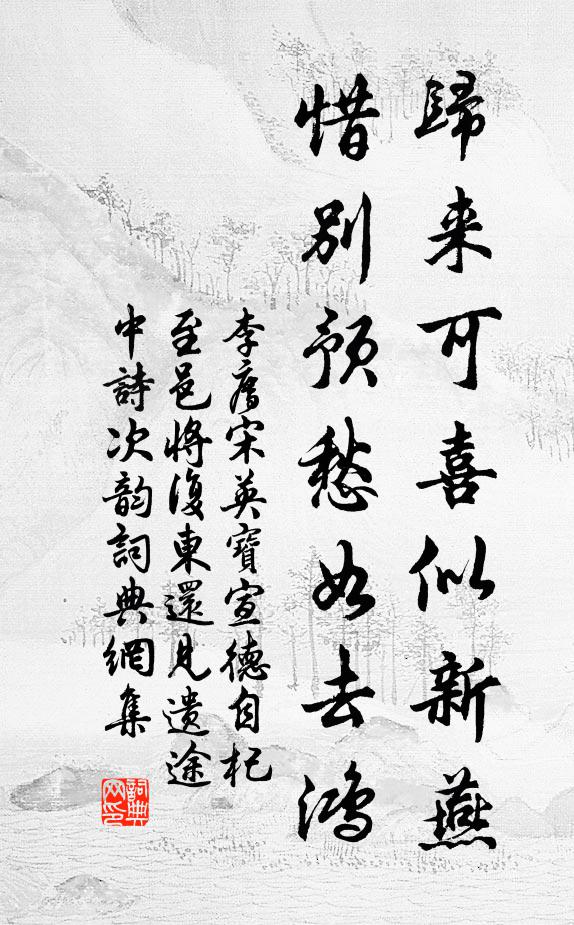 歸来可喜似新燕
惜别预愁如去鴻
李廌宋英寳宣德自杞
至邑將復東還見遗途
中詩次韵詞典網集
詞典网印